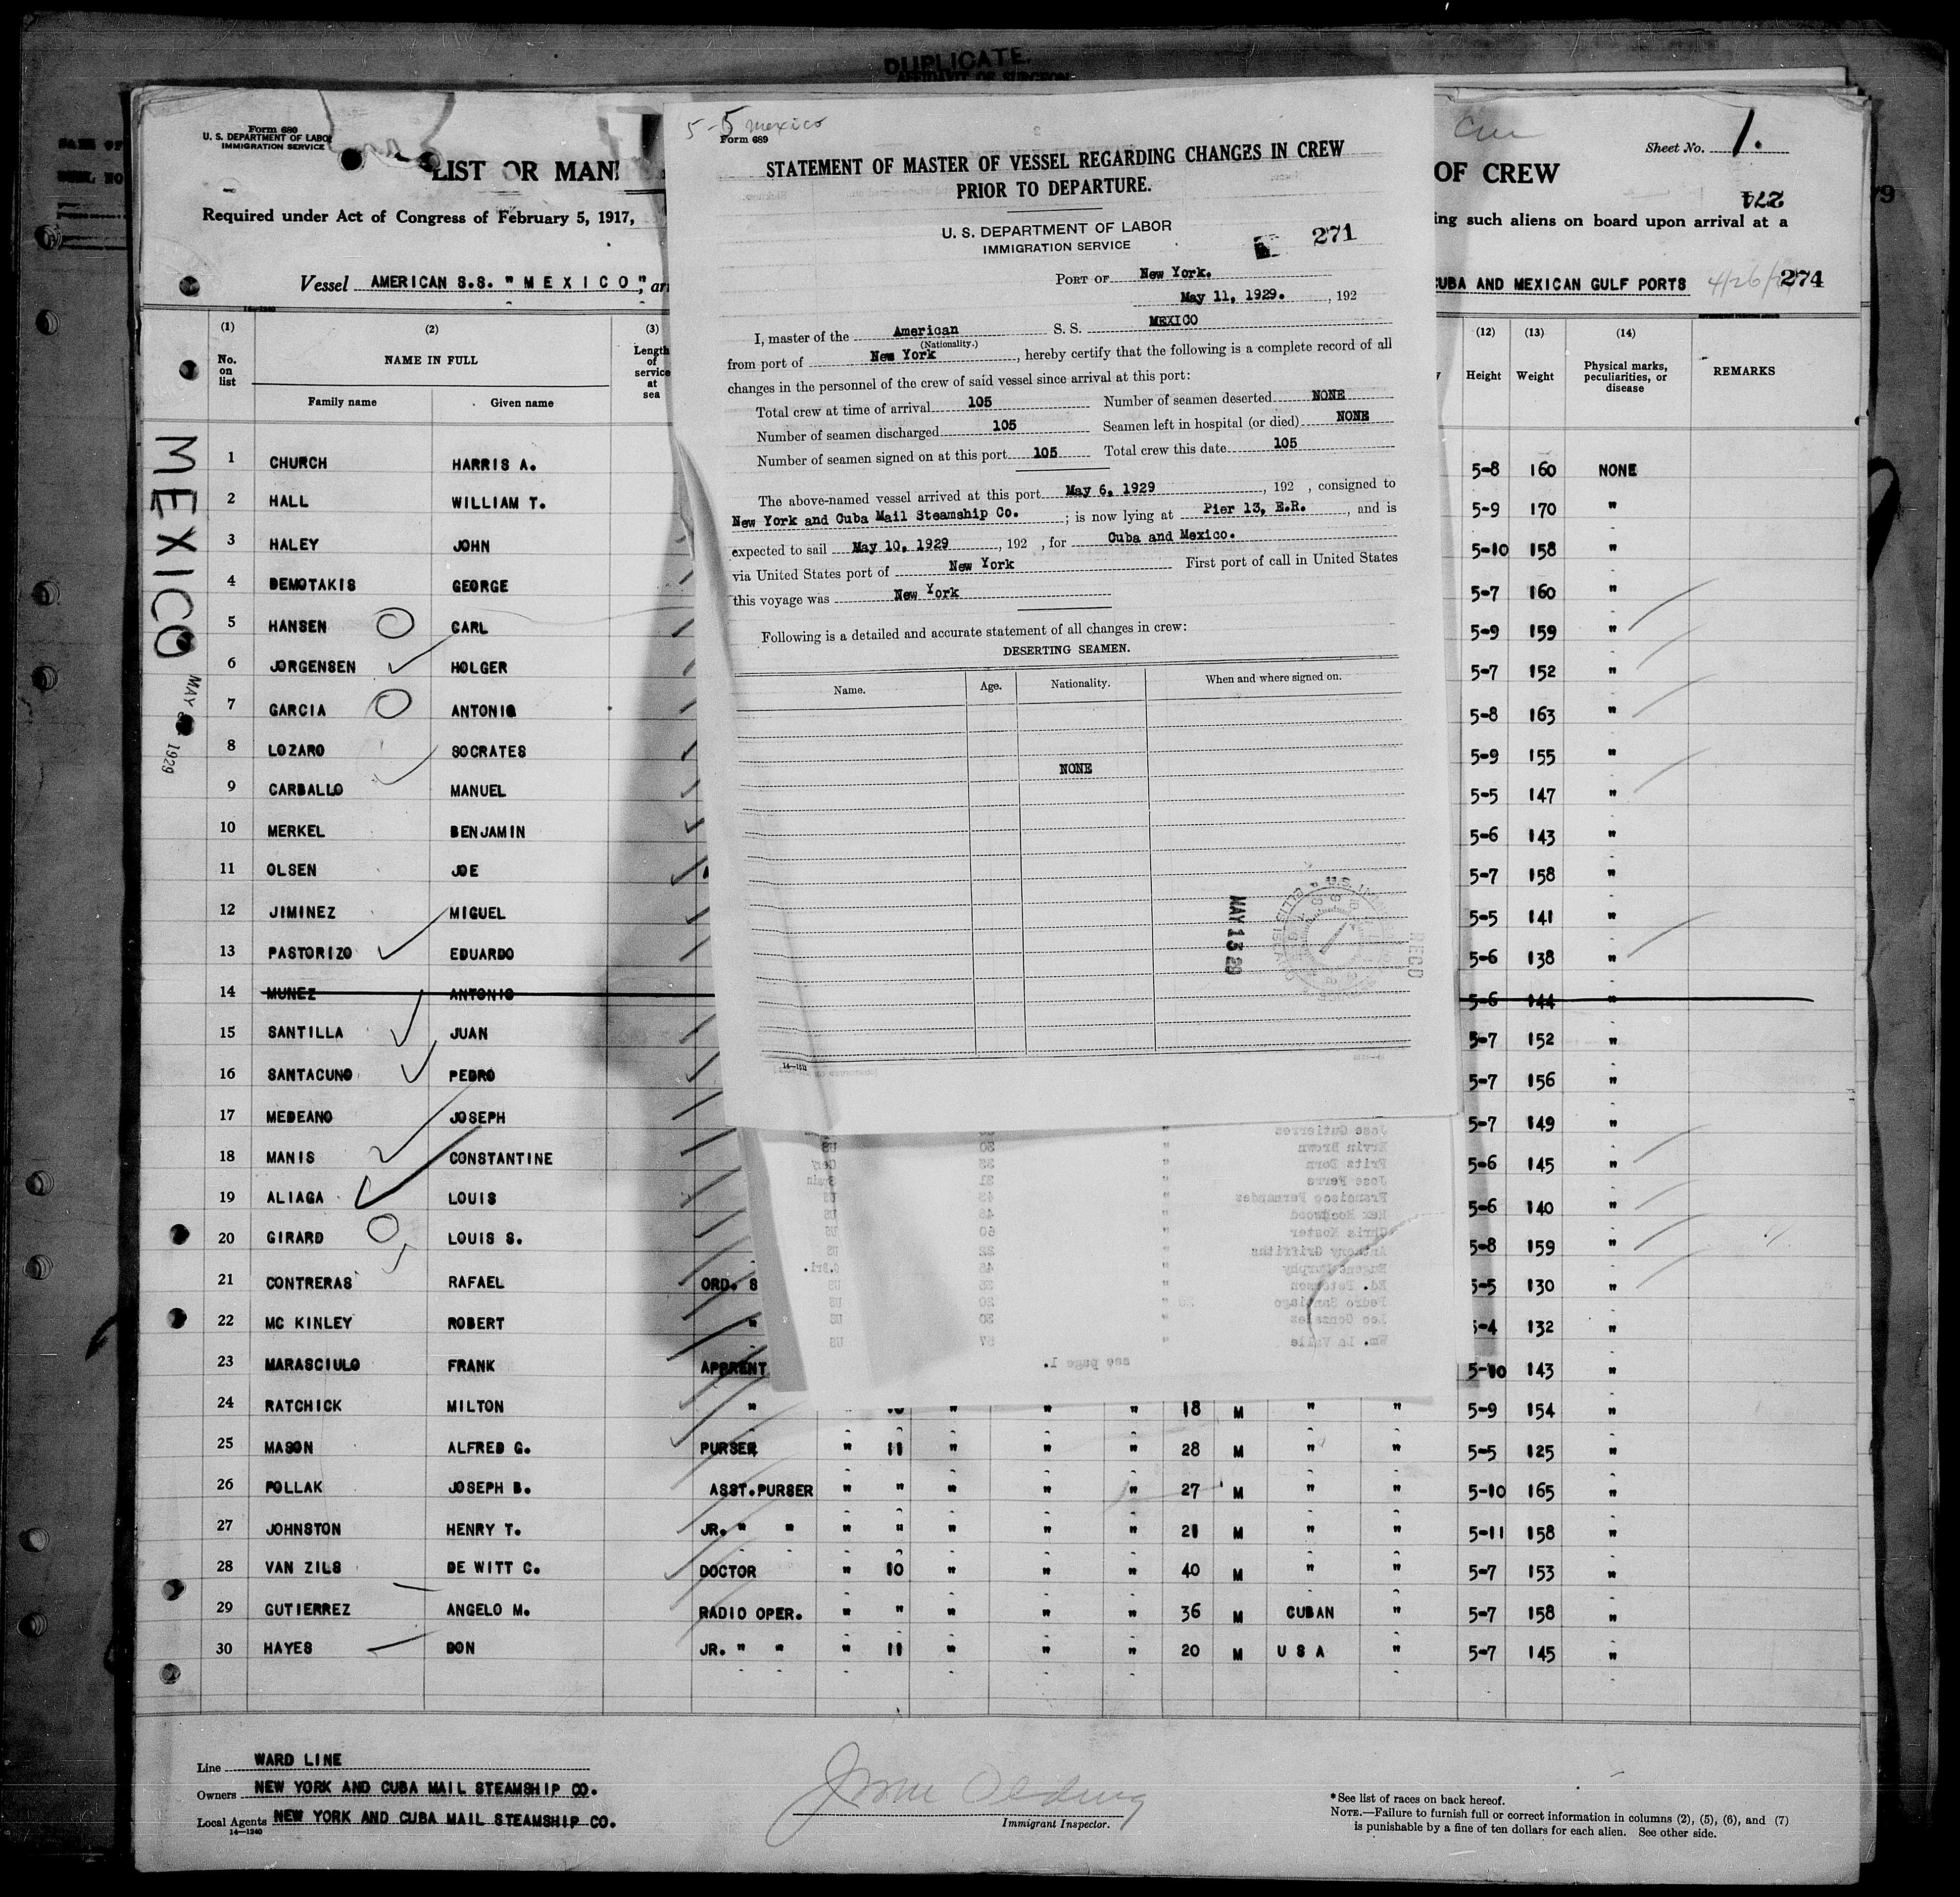 DUPLICATE.
AFFIDAVIT OF SURGEON
Form 680
U. S. DEPARTMENT OF LABOR
IMMIGRATION SERVICE
LIST OR MANI
Required under Act of Congress of February 5, 1917,
Vessel AMERICAN S.S. "MEXICO", arr
OF CREW
Sheet No. 1.
274
ing such aliens on board upon arrival at a
CUBA AND MEXICAN GULF PORTS 274
5-5 Mexico
Form 689
STATEMENT OF MASTER OF VESSEL REGARDING CHANGES IN CREW
PRIOR TO DEPARTURE.
U. S. DEPARTMENT OF LABOR
IMMIGRATION SERVICE
271
PORT OF New York.
May 11, 1929. , 192
I, master of the American S. S. MEXICO
(Nationality.)
from port of New York , hereby certify that the following is a complete record of all
changes in the personnel of the crew of said vessel since arrival at this port:
Total crew at time of arrival 105 Number of seamen deserted NONE
Number of seamen discharged 105 Seamen left in hospital (or died) NONE
Number of seamen signed on at this port 105 Total crew this date 105
The above-named vessel arrived at this port May 6, 1929 , 192 , consigned to
New York and Cuba Mail Steamship Co. ; is now lying at Pier 13, E.R. , and is
expected to sail May 10, 1929 , 192 , for Cuba and Mexico.
via United States port of New York First port of call in United States
this voyage was New York
Following is a detailed and accurate statement of all changes in crew:
DESERTING SEAMEN.
Name. Age. Nationality. When and where signed on.
NONE
MAY 13 29
RECD
14-1313
Jose Gutierres 
Ervin Brown " 30 US
Fritz Dorn " 33 Ger
Jose Ferra " 31 Spain
Francisco Fernandez " 43 US
Rex Hopwood " 48 US
Chris Koster " 60 US
Antony Griffiths " 22 US
Eugene Murphy " 45 G.Bri.
Ed. Peterson " 35 US
Pedro Santiago " 20 US
Leo Gonzales " 30 US
Wm. La Valle " 57 US
see page 1.
(1) (2) (3) (12) (13) (14)
No. on list NAME IN FULL Length of service at sea Height Weight Physical marks, peculiarities, or disease REMARKS
Family name Given name
MEXICO
MAY 6 1929
1 CHURCH HARRIS A. 5-8 160 NONE
2 HALL WILLIAM T. 5-9 170 "
3 HALEY JOHN 5-10 158 "
4 DEMOTAKIS GEORGE 5-7 160 "
5 HANSEN CARL 5-9 159 "
6 JORGENSEN HOLGER 5-7 152 "
7 GARCIA ANTONIO 5-8 163 "
8 LOZARO SOCRATES 5-9 155 "
9 CARBALLO MANUEL 5-5 147 "
10 MERKEL BENJAMIN 5-6 143 "
11 OLSEN JOE 5-7 158 "
12 JIMINEZ MIGUEL 5-5 141 "
13 PASTORIZO EDUARDO 5-6 138 "
14 MUNEZ ANTONIO 5-6 144 "
15 SANTILLA JUAN 5-7 152 "
16 SANTACUNO PEDRO 5-7 156 "
17 MEDEANO JOSEPH 5-7 149 "
18 MANIS CONSTANTINE 5-6 145 "
19 ALIAGA LOUIS 5-6 140 "
20 GIRARD LOUIS S. 5-8 159 "
21 CONTRERAS RAFAEL ORD. S 5-5 130 "
22 MC KINLEY ROBERT " 5-4 132 "
23 MARASCIULO FRANK APPRENT 5-10 143 "
24 RATCHICK MILTON " " " " 18 M " " 5-9 154 "
25 MASON ALFRED G. PURSER " 11 " " " 28 M " " 5-5 125 "
26 POLLAK JOSEPH B. ASST.PURSER " " " " " 27 M " " 5-10 165 "
27 JOHNSTON HENRY T. JR. " " " " " " " 21 M " " 5-11 158 "
28 VAN ZILS DE WITT C. DOCTOR " 10 " " " 40 M " " 5-7 153 "
29 GUTIERREZ ANGELO M. RADIO OPER. " " " " " 36 M CUBAN " 5-7 158 "
30 HAYES DON JR. " " " 11 " " " 20 M U S A " 5-7 145 "
Line WARD LINE
Owners NEW YORK AND CUBA MAIL STEAMSHIP CO.
Local Agents NEW YORK AND CUBA MAIL STEAMSHIP CO.
14-1240
Immigrant Inspector.
*See list of races on back hereof.
NOTE.—Failure to furnish full or correct information in columns (2), (5), (6), and (7)
is punishable by a fine of ten dollars for each alien. See other side.